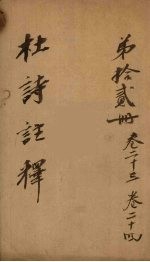 第拾貳冊
卷二十三 卷二十四
杜詩註釋